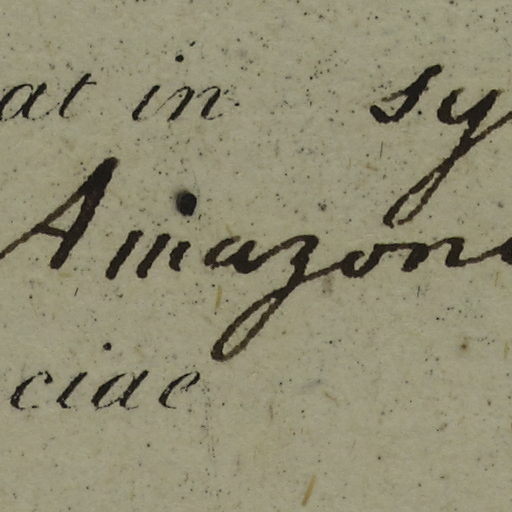 at in sy
Amazon
ciae